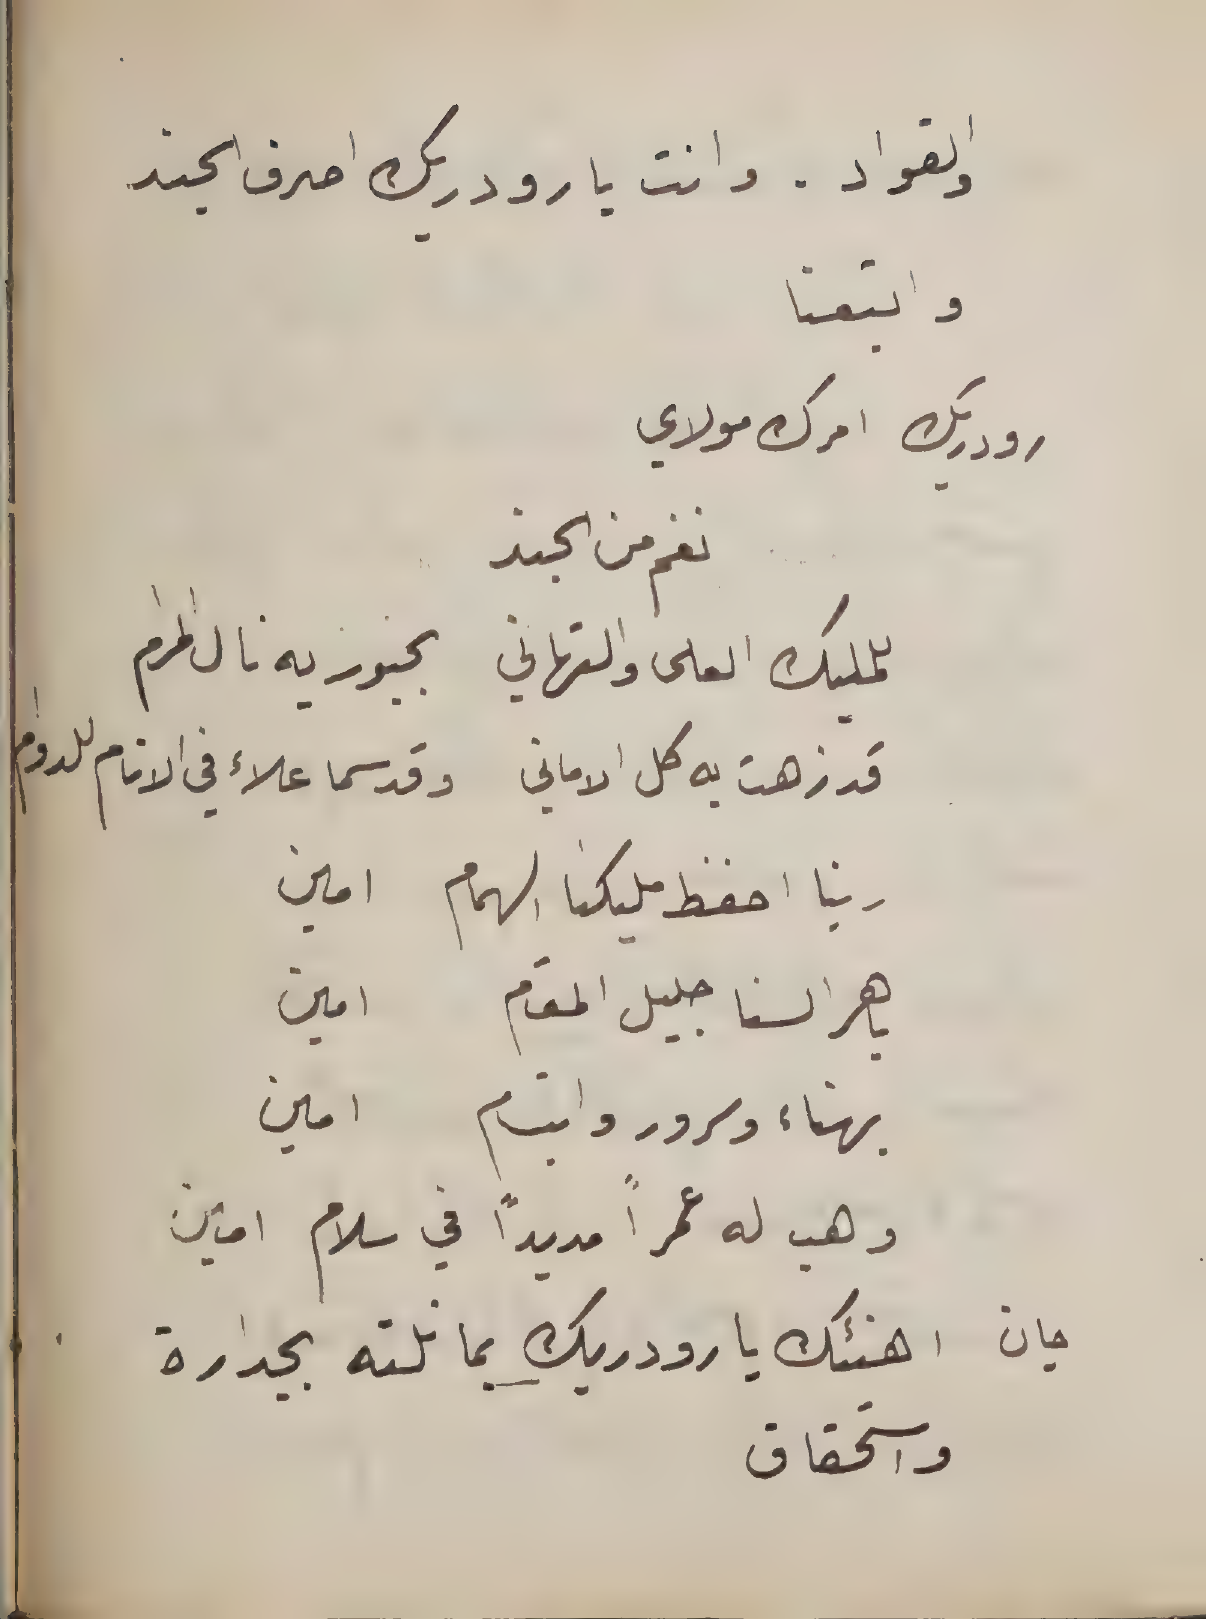 والقواد . وانت يا رودريك اصرف الجند
واتبعنا
رودريك امرك مولاي
نغم من الجند
للمليك العلى والتهاني بجنود به نال المرام
قد زهت به كل الاماني وقد سما علاء في الانام للدوام
ربنا احفظ مليكنا الهمام امين
باهر السنا جليل المقام امين
بهناء وسرور وابتسام امين
وهب له عمراً مديداً في سلام امين
جان اهنئك يا رودريك بما نلته بجدارة
واستحقاق